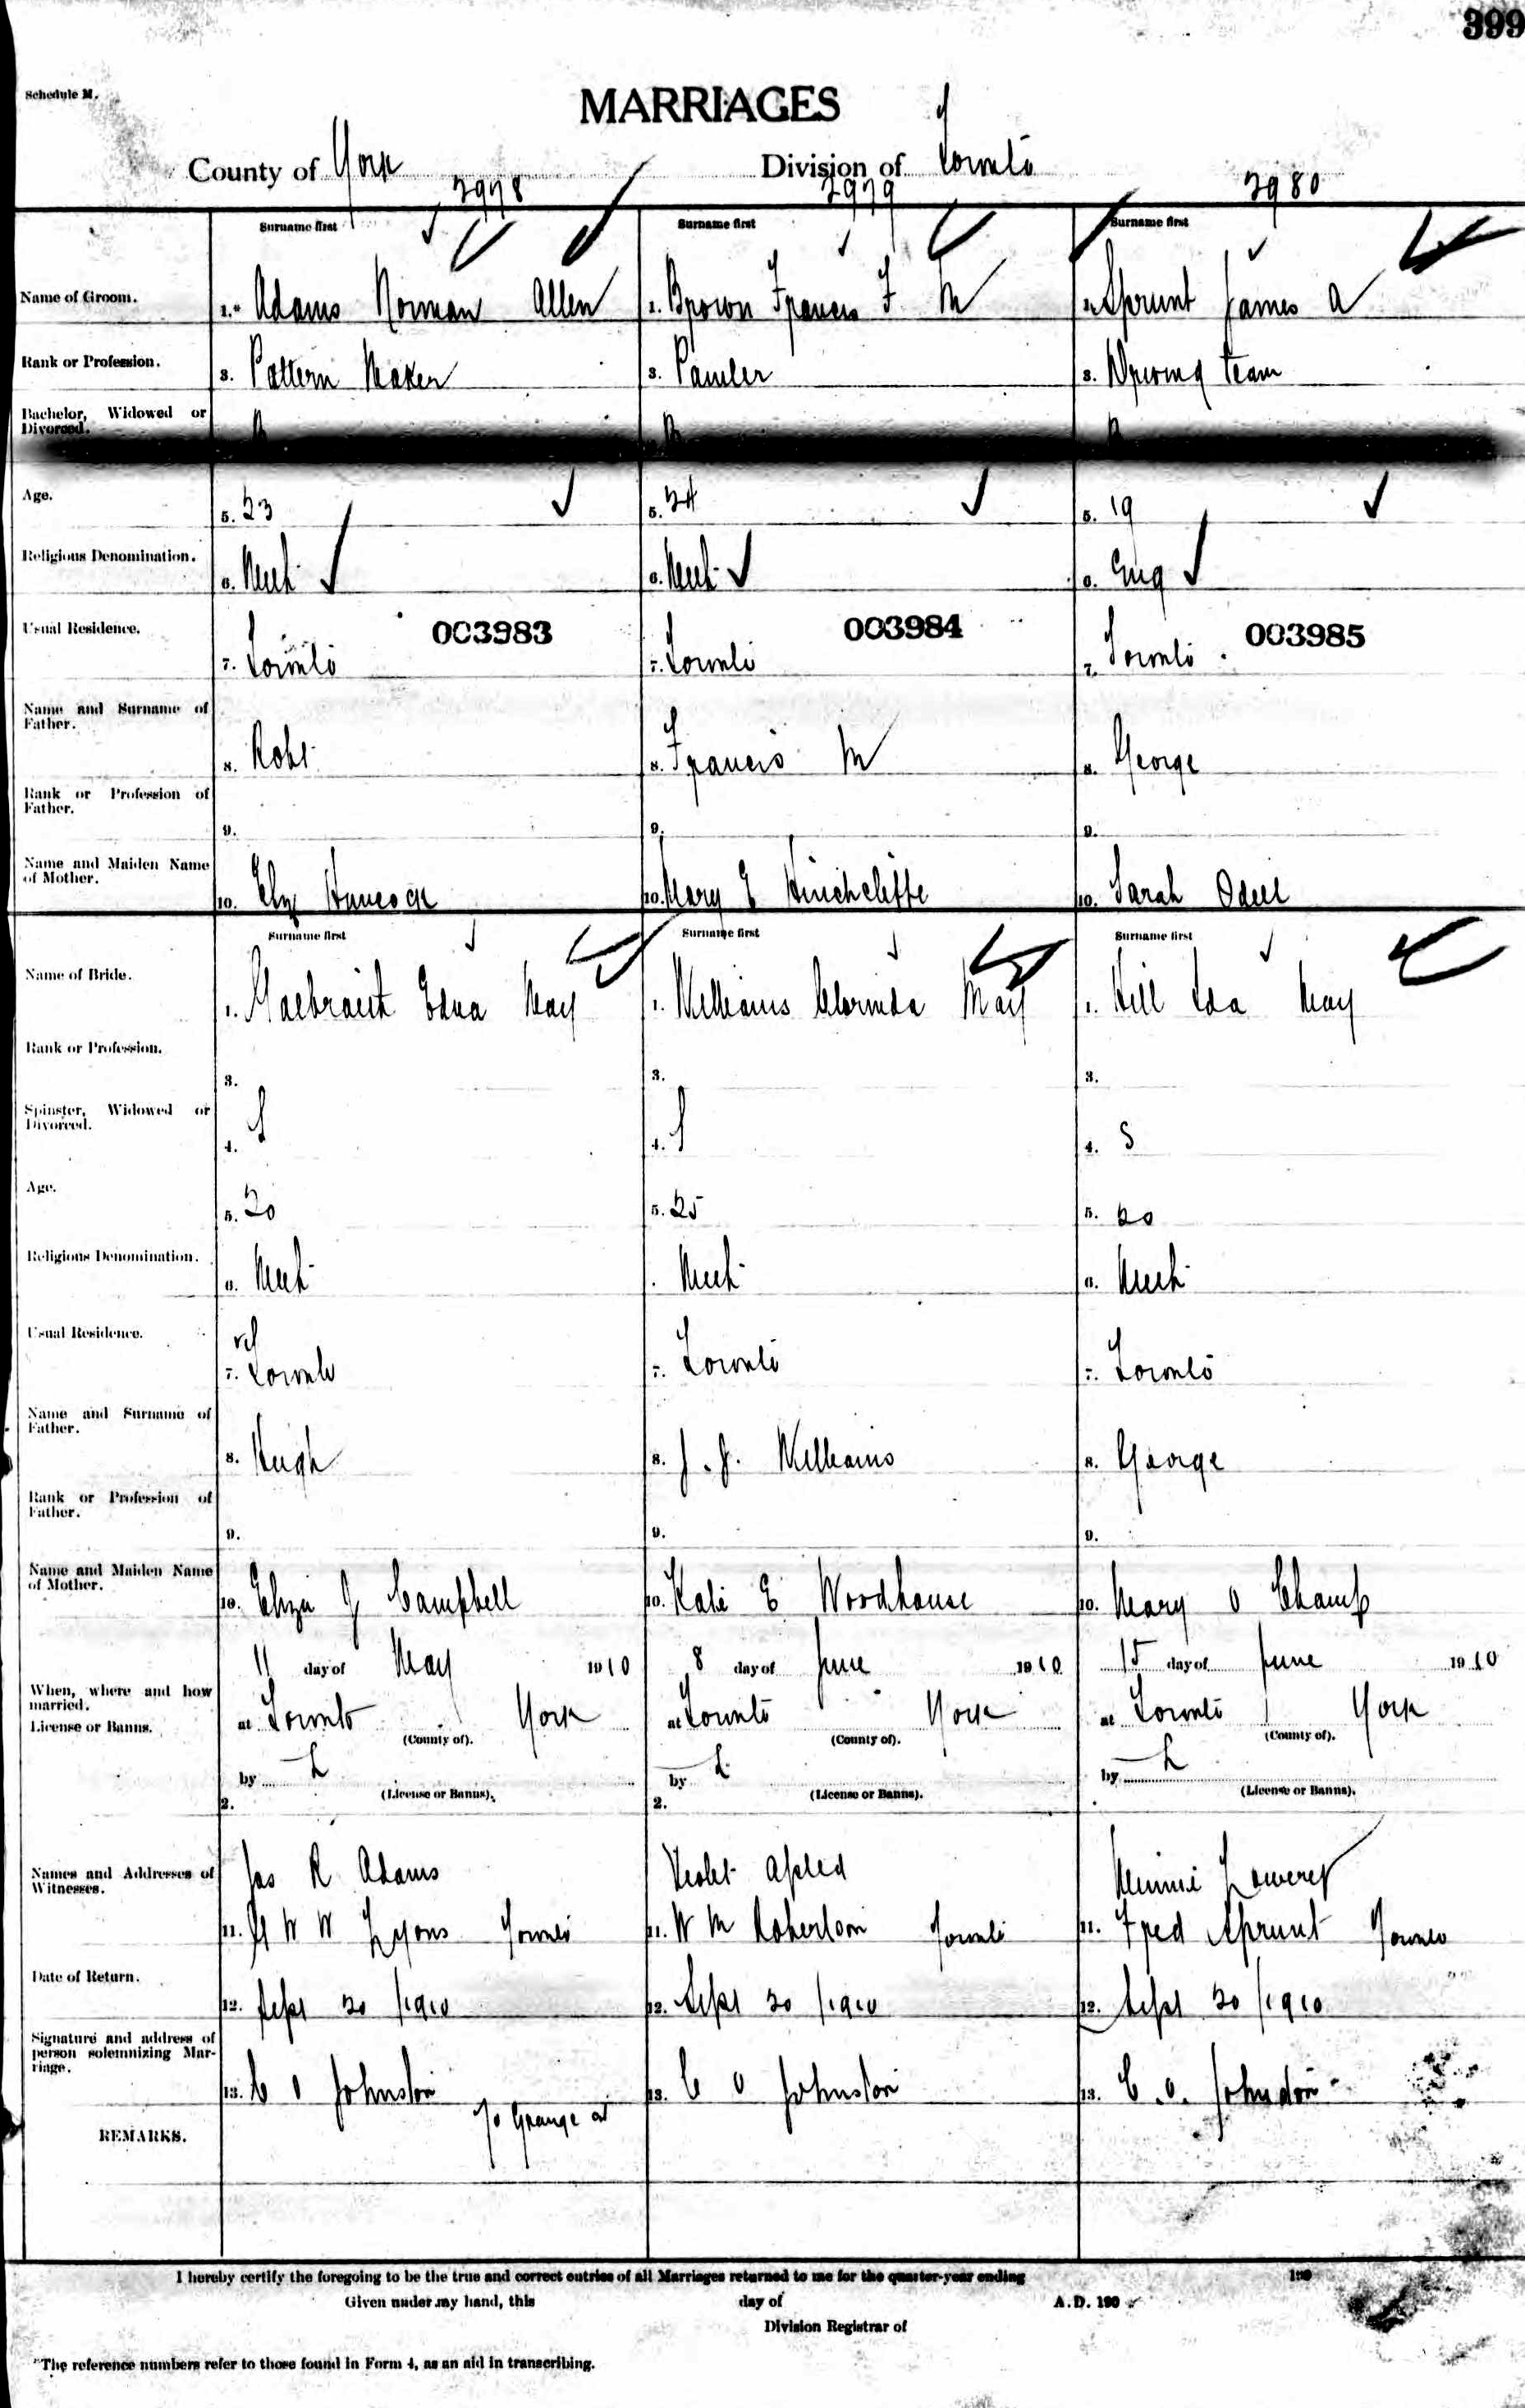 399
Schedule M.
MARRIAGES
County of York Division of Toronto
2978 2979 2980
Surname first Surname first Surname first
Name of Groom. 1. Adams Norman Allen 1. Brown Francis F M 1. Sprunt James A
Rank or Profession. 3. Pattern Maker 3. Painter 3. Driving team
Bachelor, Widowed or Divorced. B B B
Age. 5. 23 5. 24 5. 19
Religious Denomination. 6. Meth 6. Meth 6. Eng
003983 003984 003985
Usual Residence. 7. Toronto 7. Toronto 7. Toronto
Name and Surname of Father. 8. Robt 8. Francis M 8. George
Rank or Profession of Father. 9. 9. 9.
Name and Maiden Name of Mother. 10. Eliz Hancock 10. Mary E Hinchcliffe 10. Sarah Odell
Surname first Surname first Surname first
Name of Bride. 1. Galbraith Edna May 1. Williams Clorinda May 1. Hill Ida May
Rank or Profession. 3. 3. 3.
Spinster, Widowed or Divorced. 4. S 4. S 4. S
Age. 5. 20 5. 25 5. 20
Religious Denomination. 6. Meth . Meth 6. Meth
Usual Residence. 7. Toronto 7. Toronto 7. Toronto
Name and Surname of Father. 8. Hugh 8. J. J. Williams 8. George
Rank or Profession of Father. 9. 9. 9.
Name and Maiden Name of Mother. 10. Eliza J Campbell 10. Kate E Woodhouse 10. Mary O Champ
When, where and how married. 11 day of May 1910 8 day of June 1910 15 day of June 1910
License or Banns. at Toronto York at Toronto York at Toronto York
(County of). (County of). (County of).
by L by L by L
2. (License or Banns). 2. (License or Banns). (License or Banns).
Names and Addresses of Witnesses. Jas R Adams Violet Minnie
11. W W Lyons Toronto 11. W M Robertson Toronto 11. Fred Sprunt Toronto
Date of Return. 12. Sept 30/1910 12. Sept 30/1910 12. Sept 30/1910
Signature and address of person solemnizing Marriage. 13. C O Johnston 13. C O Johnston 13. C. O. Johnston
REMARKS. Grange
I hereby certify the foregoing to be the true and correct entries of all Marriages returned to me for the quarter-year ending 190
Given under my hand, this day of A.D. 190
Division Registrar of
*The reference numbers refer to those found in Form 4, as an aid in transcribing.